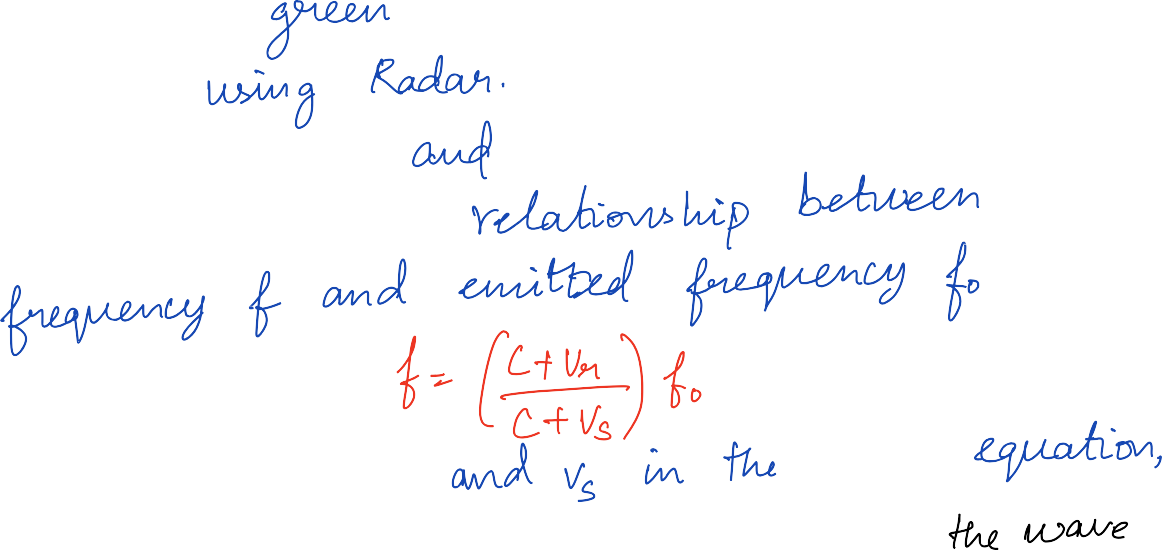 green
using Radar.
and
relationship between
frequency f and emitted frequency f₀
f = (C + Vr / C + Vs) f₀
and vs in the equation,
the wave